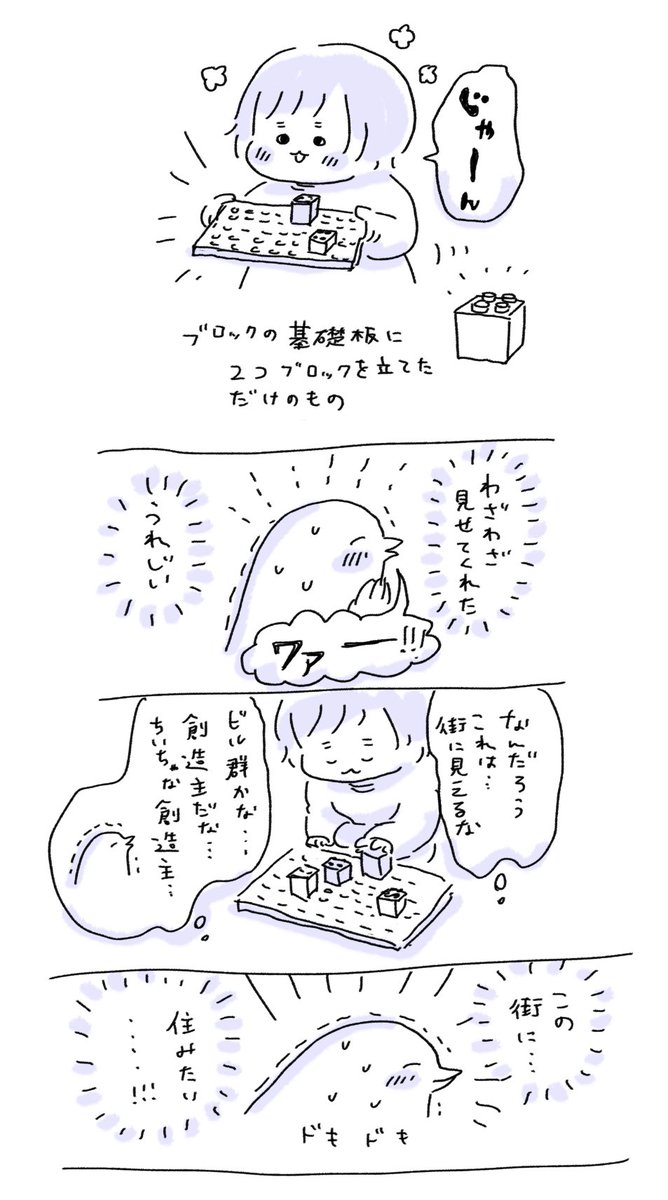 じゃーん
ブロックの基礎板に
2コブロックを立てた
だけのもの
わざわざ
見せてくれた
いうれじい
ファー!!!
なんだろう
これは…
街に見えるな
ビル群かな…
創造主だな…
ちいちゃな創造主…
この
街に…
住みたい
・・・・!!!
ドキドキ